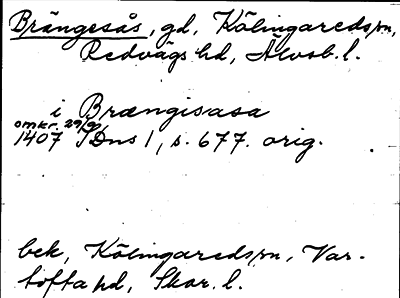 Brängesås, gd, Kölingareds sn,
Redvägs hd, Älvsb. l.
i Brængisasa
omkr. 29/9
1407 SDns 1, s. 677. orig.
bek, Kölingareds sn, Var-
tofta hd, Skar. l.